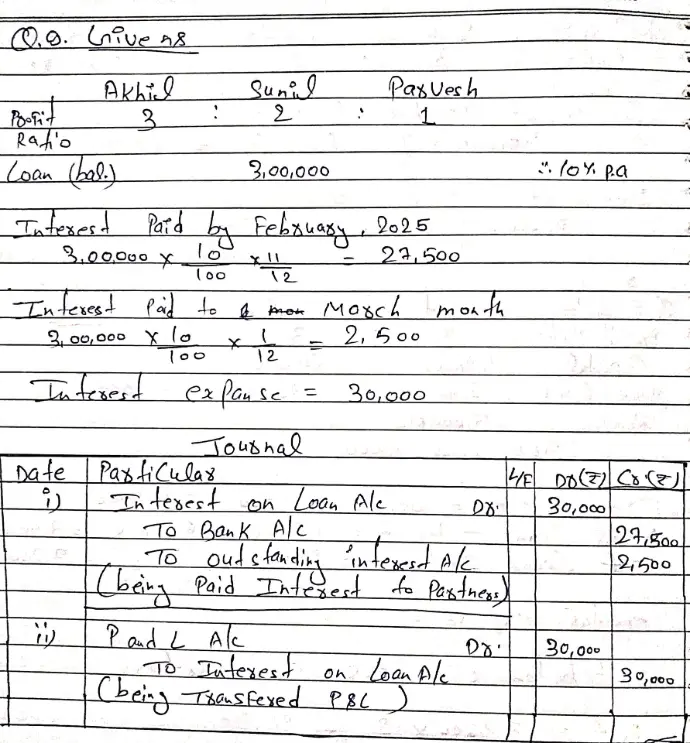 Q.9. Givens
Akhil Sunil Parvesh
Profit 3 : 2 : 1
Ratio
Loan (bal.) 3,00,000 ∴ 10% p.a
Interest Paid by February, 2025
3,00,000 × 10/100 × 11/12 = 27,500
Interest Paid to March month
3,00,000 × 10/100 × 1/12 = 2,500
Interest expanse = 30,000
Journal
Date Particular L/F Dr(₹) Cr(₹)
i) Interest on Loan A/c Dr. 30,000
To Bank A/c 27,500
To outstanding interest A/c 2,500
(being Paid Interest to Partners)
ii) P and L A/c Dr. 30,000
To Interest on Loan A/c 30,000
(being Transfered P&L)